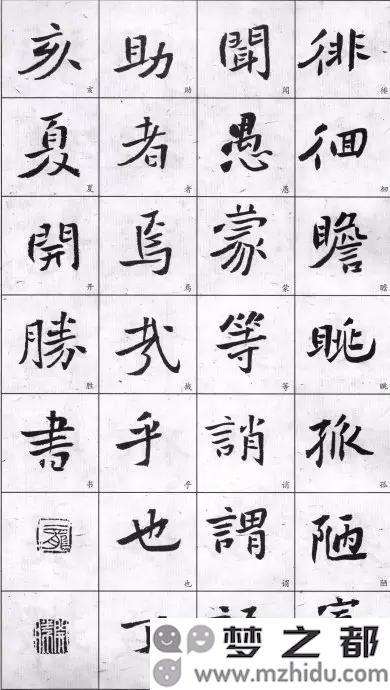 徘徊瞻眺孤陋寡
徘徊瞻眺孤陋
聞愚蒙等誚謂語
闻愚蒙等诮谓
助者焉哉乎也丁
助者焉哉乎也
亥夏開勝書
亥夏开胜书
梦之都
www.mzhidu.com